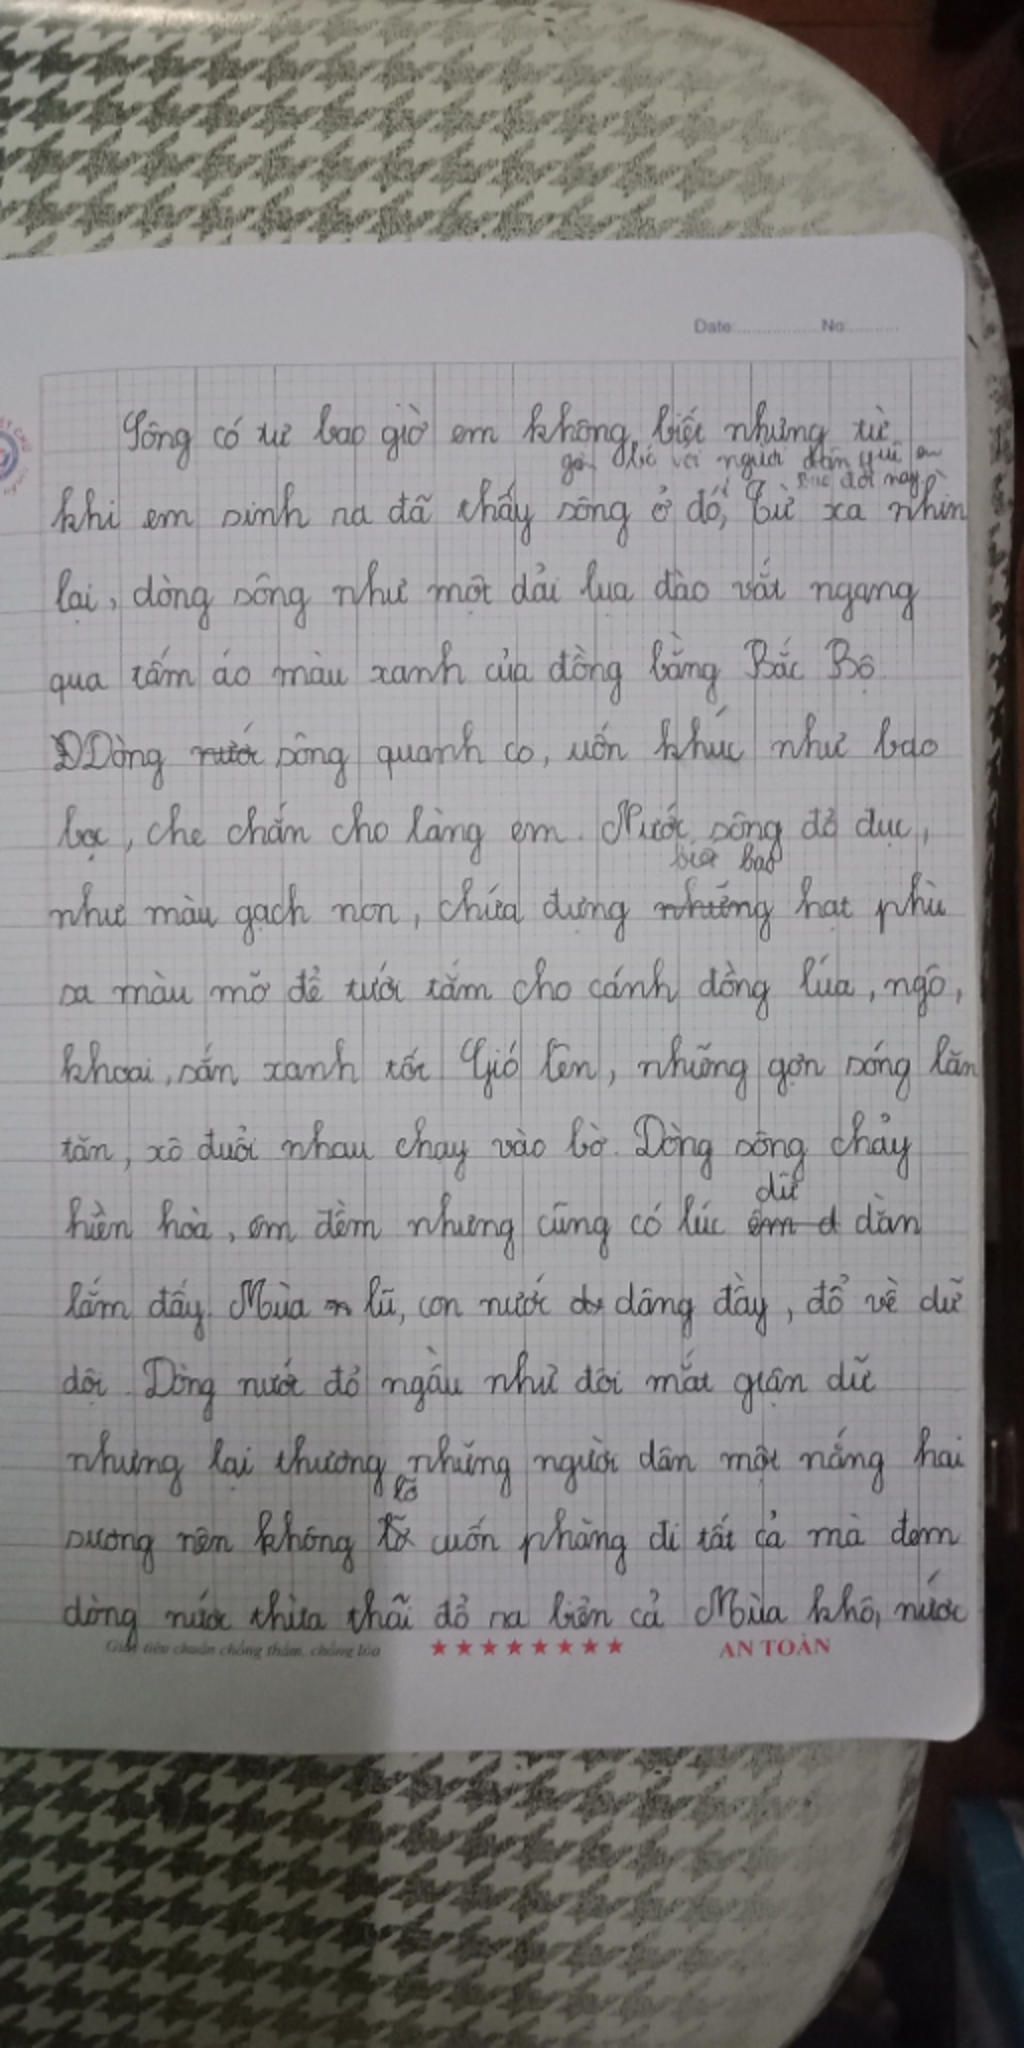 Date: No
Sông có từ bao giờ em không biết nhưng từ
gắn bó với người dân quê em
bao đời nay
khi em sinh ra đã thấy sông ở đó, Từ xa nhìn
lại, dòng sông như một dải lụa đào vắt ngang
qua tấm áo màu xanh của đồng bằng Bắc Bộ
Dòng nước sông quanh co, uốn khúc như bao
bọc, che chắn cho làng em. Nước sông đỏ đục,
biết bao
như màu gạch non, chứa đựng những hạt phù
sa màu mỡ để tưới tắm cho cánh đồng lúa, ngô,
khoai, sắn xanh tốt Gió lên, những gợn sóng lăn
tăn, xô đuổi nhau chạy vào bờ. Dòng sông chảy
dữ
hiền hoà, êm đềm nhưng cũng có lúc êm đ dằn
lắm đấy. Mùa n lũ, con nước dâng đầy, đổ về dữ
dội. Dòng nước đỏ ngầu như đôi mắt giận dữ
nhưng lại thương những người dân một nắng hai
lỡ
sương nên không cuốn phăng đi tất cả mà đem
dòng nước thừa thãi đổ ra biển cả Mùa khô, nước
Giấy tiêu chuẩn chống thấm, chống lóa ★★★★★★★★ AN TOÀN